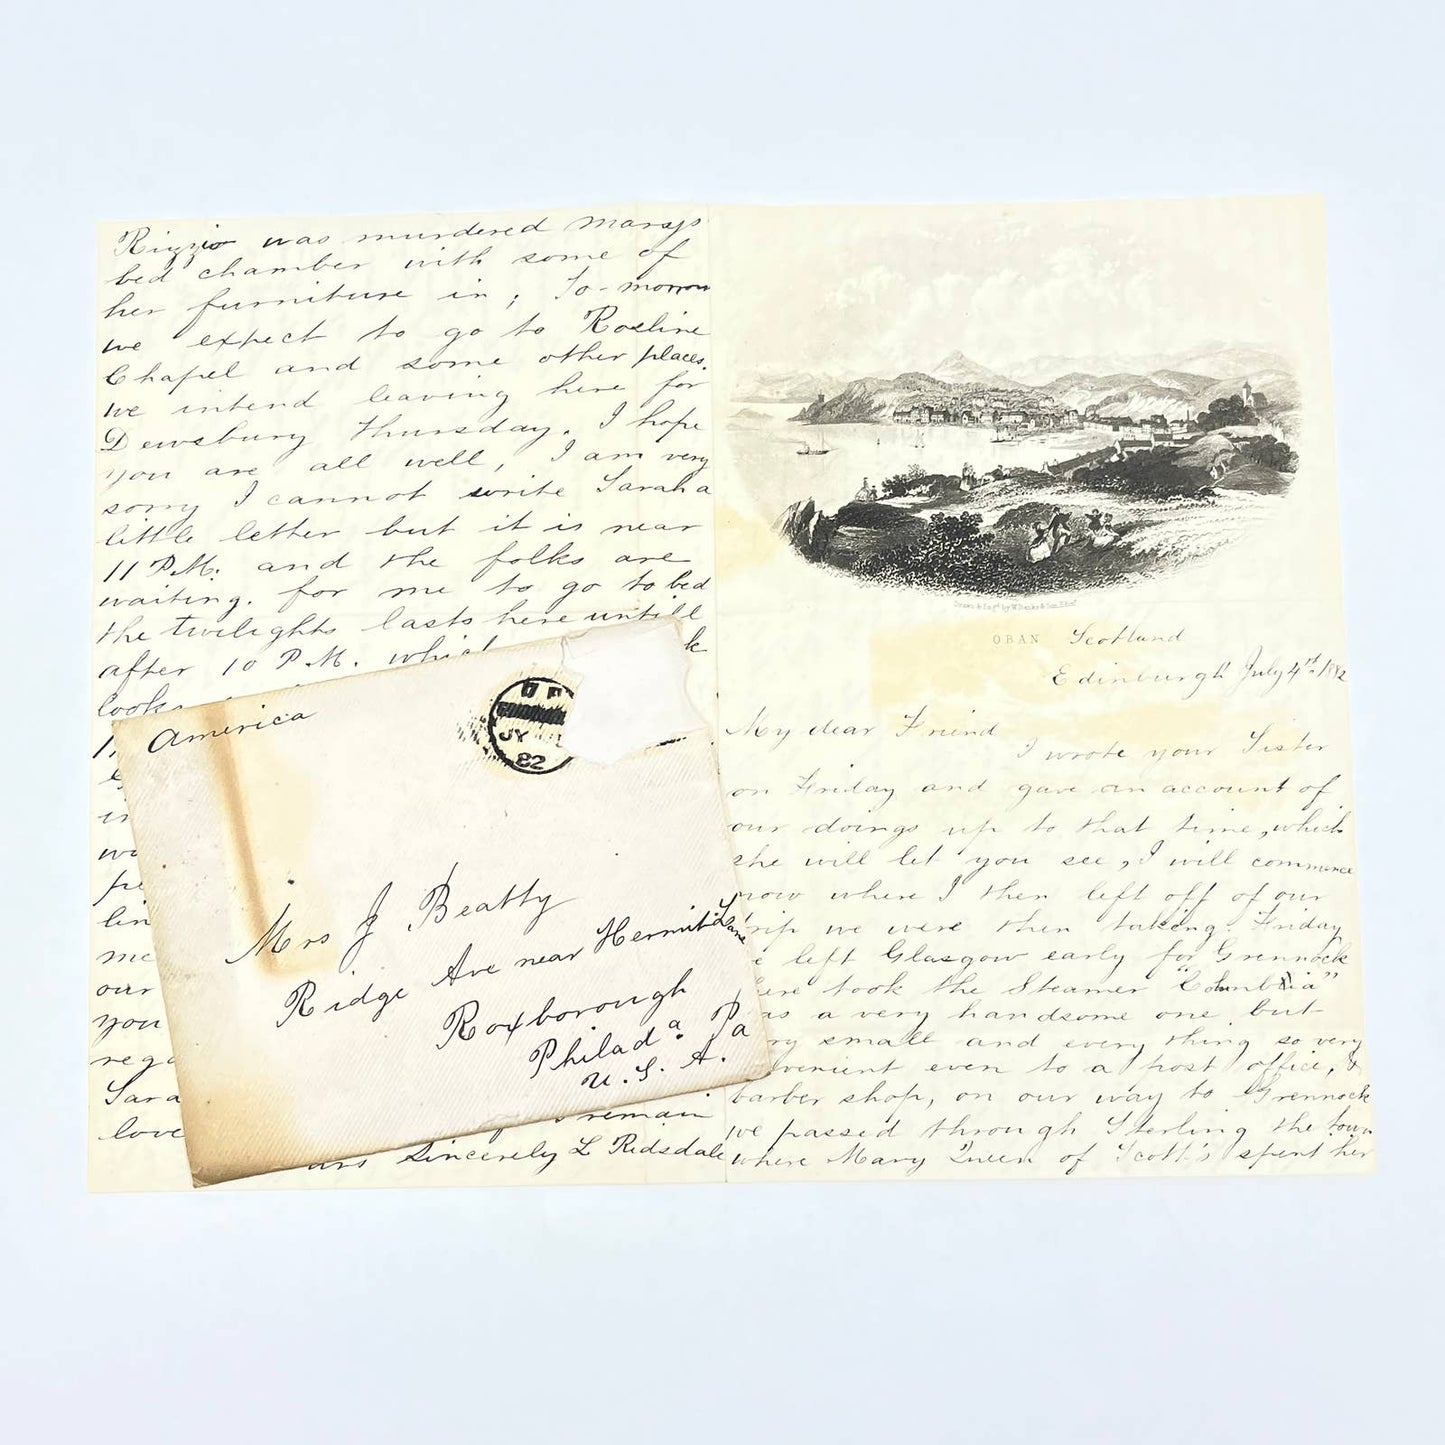 OBAN Scotland
Edinburgh July 4th 1882
My dear Friend
I wrote your Sister
on Friday and gave an account of
our doings up to that time, which
she will let you see, I will commence
now where I then left off of our
trip we were then taking. Friday
left Glasgow early for Grennock
took the Steamer "Columbia"
a very handsome one but
small and every thing so very
even to a post office, &
barber shop, on our way to Grennock
we passed through Sterling the town
where Mary Queen of Scott's spent her
Rizzio was murdered Marys
bed chamber with some of
her furniture in; To-morrow
we expect to go to Rosline
Chapel and some other places.
we intend leaving here for
Dewsbury Thursday. I hope
you are all well, I am very
sorry I cannot write Sarah a
little letter but it is near
11 P.M. and the folks are
waiting. for me to go to bed
the twilights lasts here untill
after 10 P.M.
looks
in
me
our
you
love
remain
Sincerely L Ridsdale
America
JY
82
Mrs J Beatty
Ridge Ave near Hermit Lane
Roxborough
Philada. Pa
U.S.A.